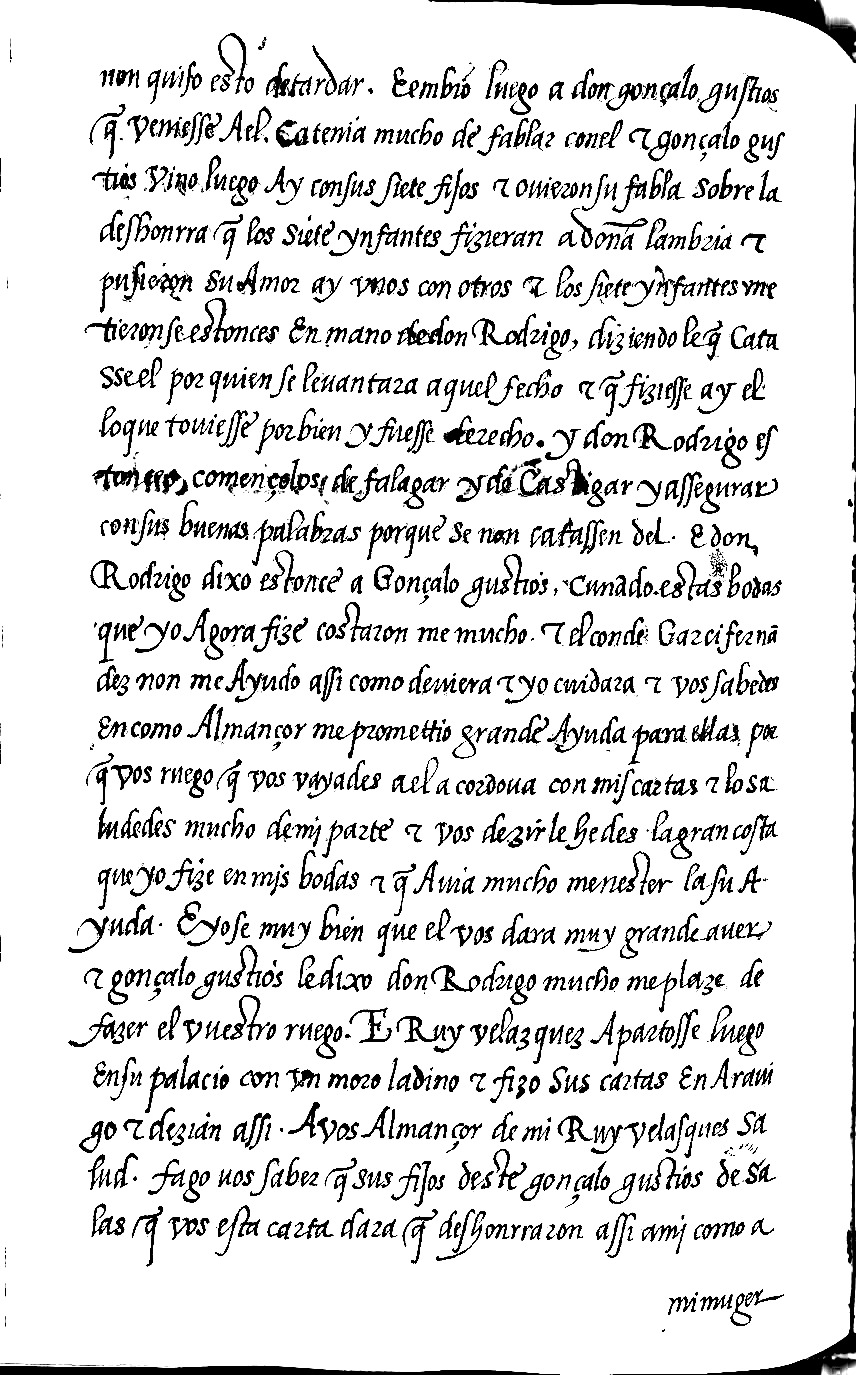 non quiso esto detardar. E embió luego a don gonçalo gustios
q̃ veniesse Ael. Ca tenia mucho de fablar conel ⁊ gonçalo gus
tios vino luego Ay consus siete fijos ⁊ ovieron su fabla sobre la
deshonrra q̃ los siete ynfantes fizieran a doña lambria ⁊
pusieron su Amor ay vnos con otros ⁊ los siete ynfantes me
tieronse estonces En mano de don Rodrigo, diziendo le q̃ Cata
sse el por quien se levantara aquel fecho ⁊ q̃ fiziesse ay el
loque toviesse por bien y fuesse derecho. y don Rodrigo es
tonces, començolos de falagar y de Castigar y assegurar
consus buenas palabras porque se non catassen del. E don
Rodrigo dixo estonce a Gonçalo gustios, Cunado estas bodas
que yo Agora fize costaron me mucho. ⁊ el conde Garci fernã
dez non me Ayudo assi como deviera ⁊ yo cuidara ⁊ vos sabedes
En como Almançor me promettio grande Ayuda para ellas por
q̃ vos ruego q̃ vos vayades a el a cordova con mis cartas ⁊ lo sa
ludedes mucho de mi parte ⁊ vos dezirle hedes la gran costa
que yo fize en mis bodas ⁊ q̃ Avia mucho menester la su A
yuda. E yo se muy bien que el vos dara muy grande aver
⁊ gonçalo gustios le dixo don Rodrigo mucho me plaze de
fazer el vuestro ruego. E Ruy velazquez Apartosse luego
En su palacio con vn moro ladino ⁊ fizo sus cartas En Aravi
go ⁊ dezian assi. A vos Almançor de mi Ruy velasques sa
lud. fago vos saber q̃ sus fijos deste gonçalo gustios de sa
las q̃ vos esta carta dara q̃ deshonrraron assi a mj como a
mi muger